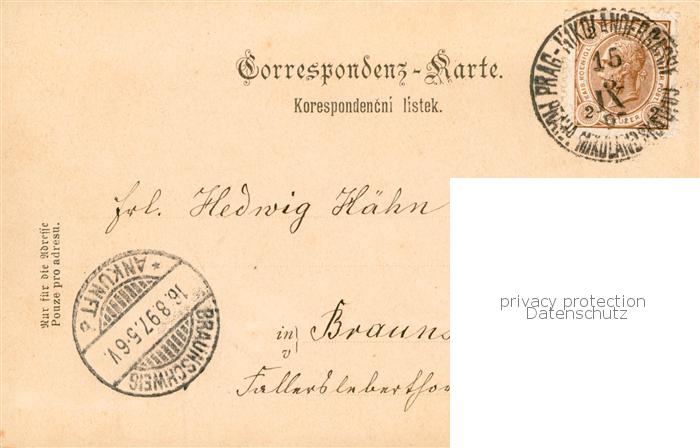 Correspondenz-Karte.
Korespondenční lístek.
PRAG-NIKOLANDERGASSE
15
2
2
frl. Hedwig Hähn
Nur für die Adresse
Pouze pro adresu.
* ANKUNFT *
16.8.97.5-6V.
BRAUNSCHWEIG
in Brauns
Fallersleberthor
privacy protection
Datenschutz